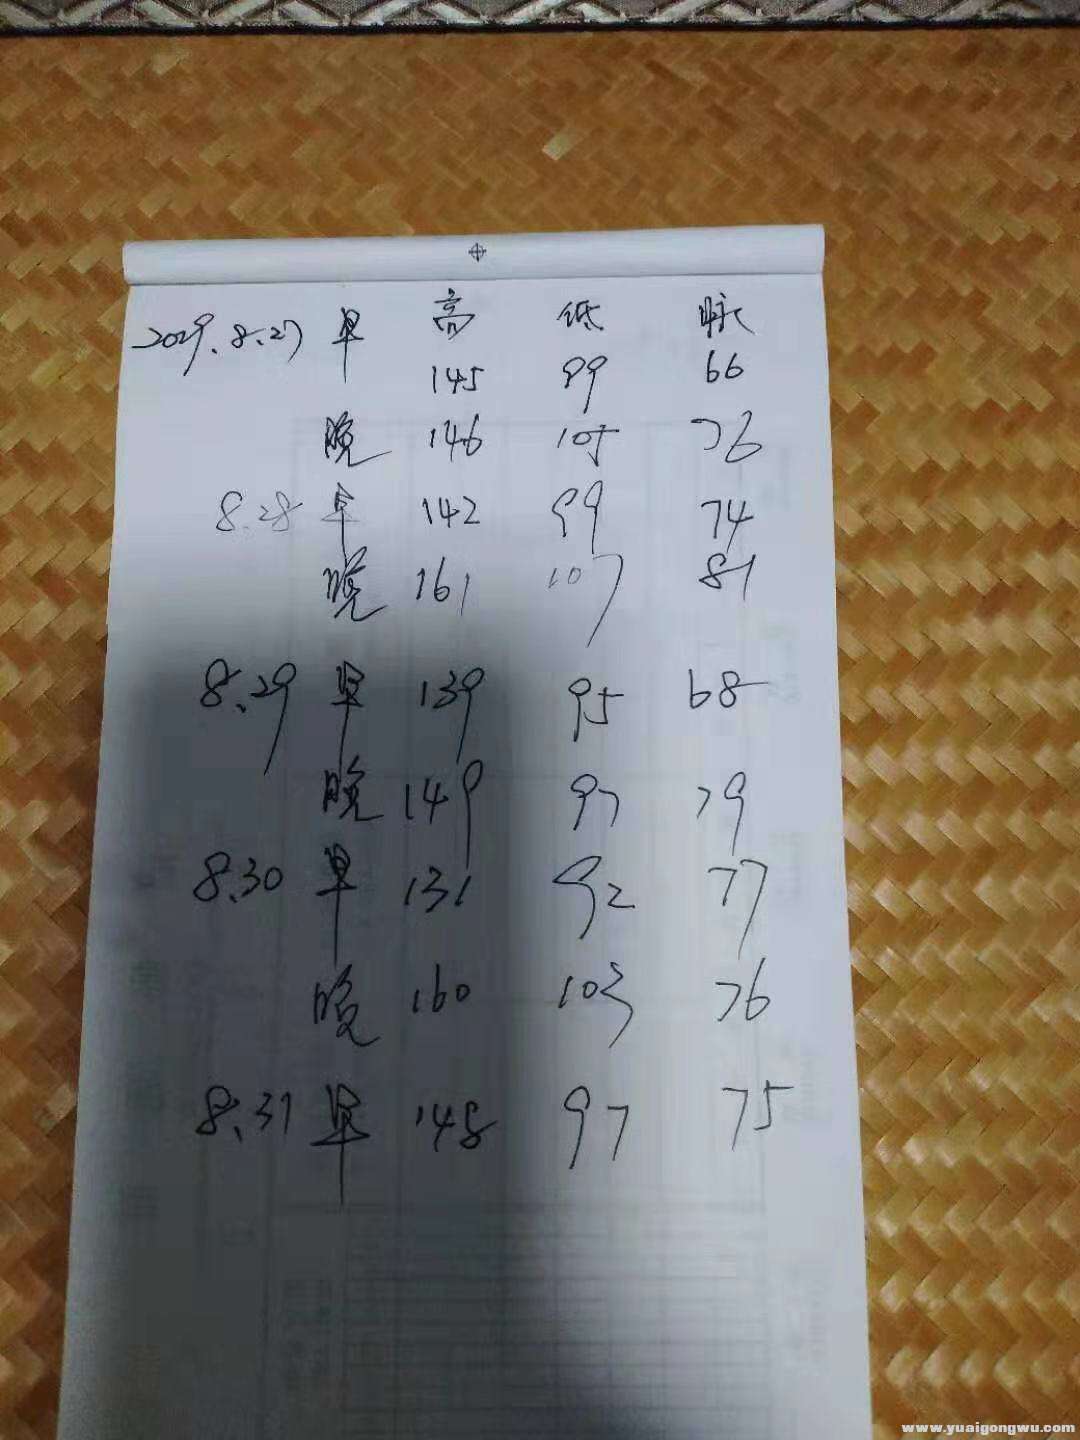 2029.8.27 早 高 低 脉
145 89 66
晚 146 105 76
8.28 早 142 99 74
晚 161 107 81
8.29 早 139 95 68
晚 149 97 79
8.30 早 131 92 77
晚 160 103 76
8.31 早 148 97 75
www.yuaigongwu.com